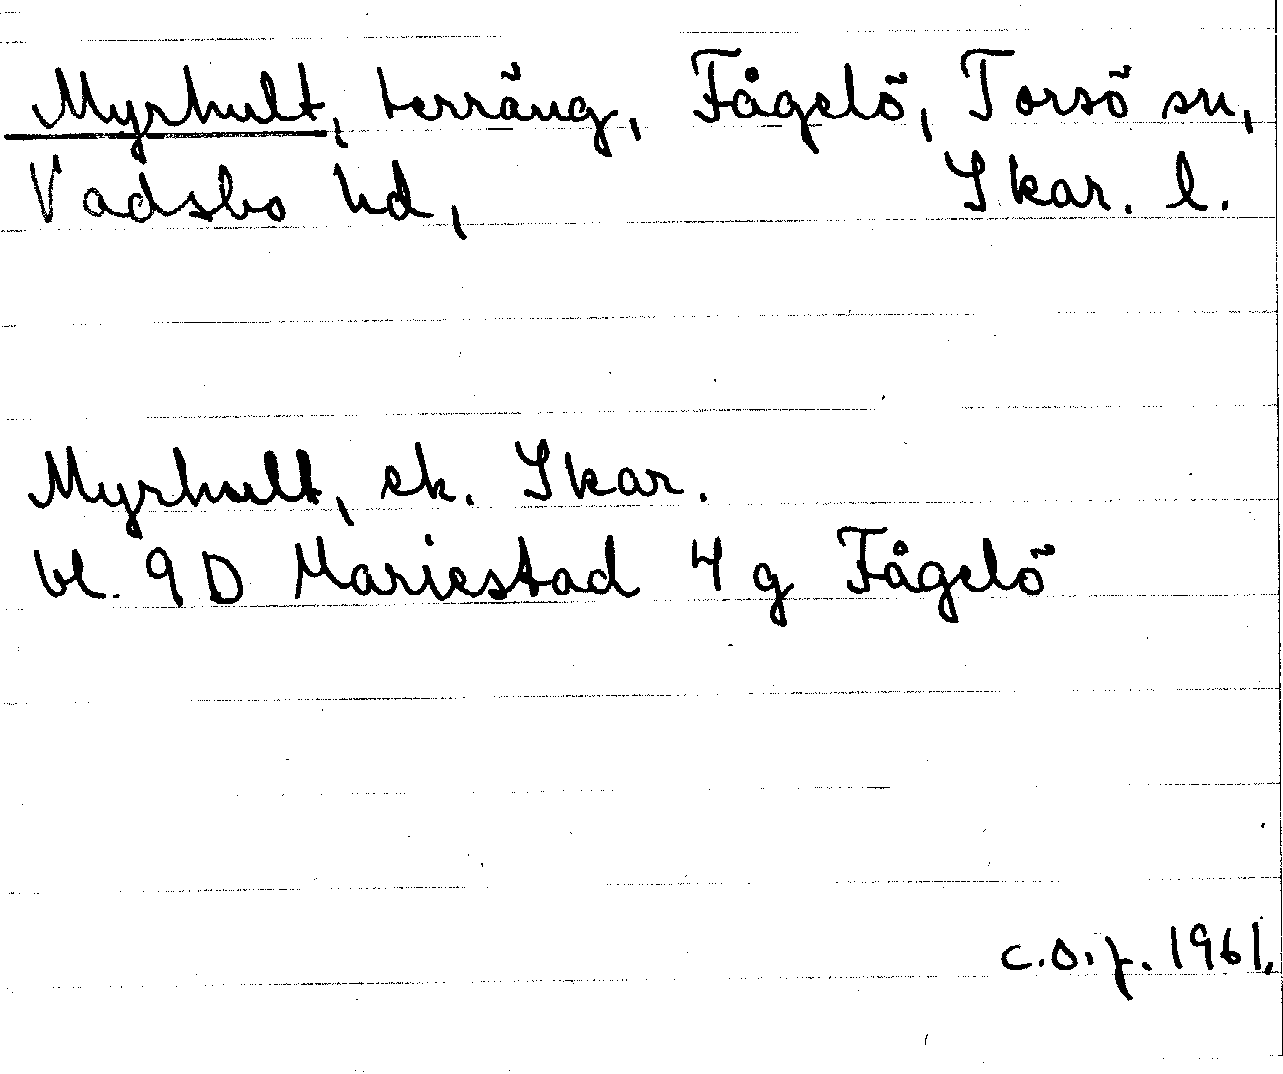 Myrhult, terräng, Fågelö, Torsö sn,
Vadsbo hd, Skar. l.
Myrhult, ek. Skar.
bl. 9 D Mariestad 4 g Fågelö
C.O.f. 1961.